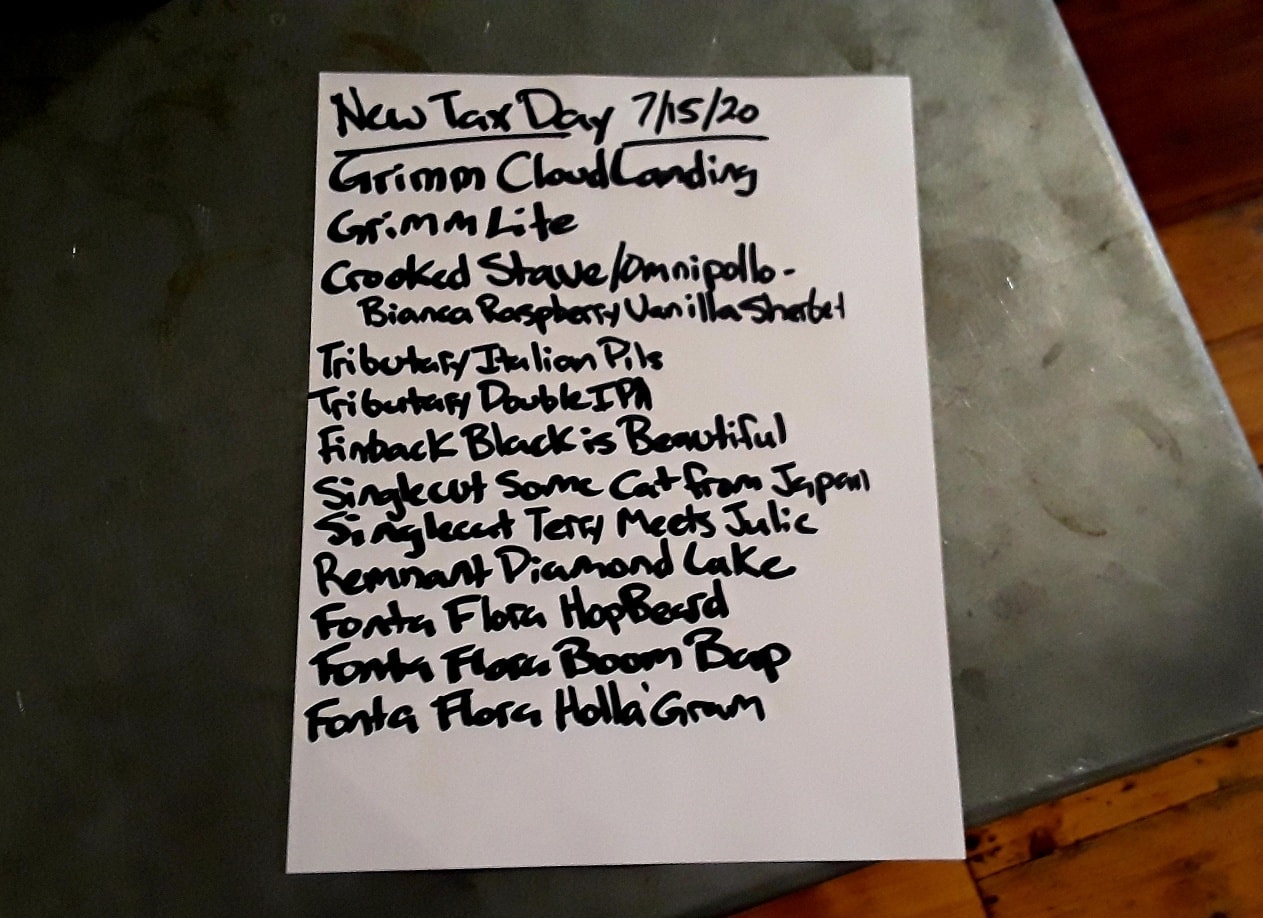 New Tax Day 7/15/20
Grimm Cloud Landing
Grimm Lite
Crooked Stave/Omnipollo-
Bianca Raspberry Vanilla Sherbet
Tributary Italian Pils
Tributary Double IPA
Finback Black is Beautiful
Singlecut Some Cat from Japan
Singlecut Terry Meets Julie
Remnant Diamond Lake
Fonta Flora HopBeard
Fonta Flora Boom Bap
Fonta Flora Holla'Gram